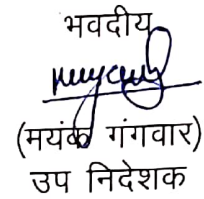 भवदीय
(मयंक गंगवार)
उप निदेशक